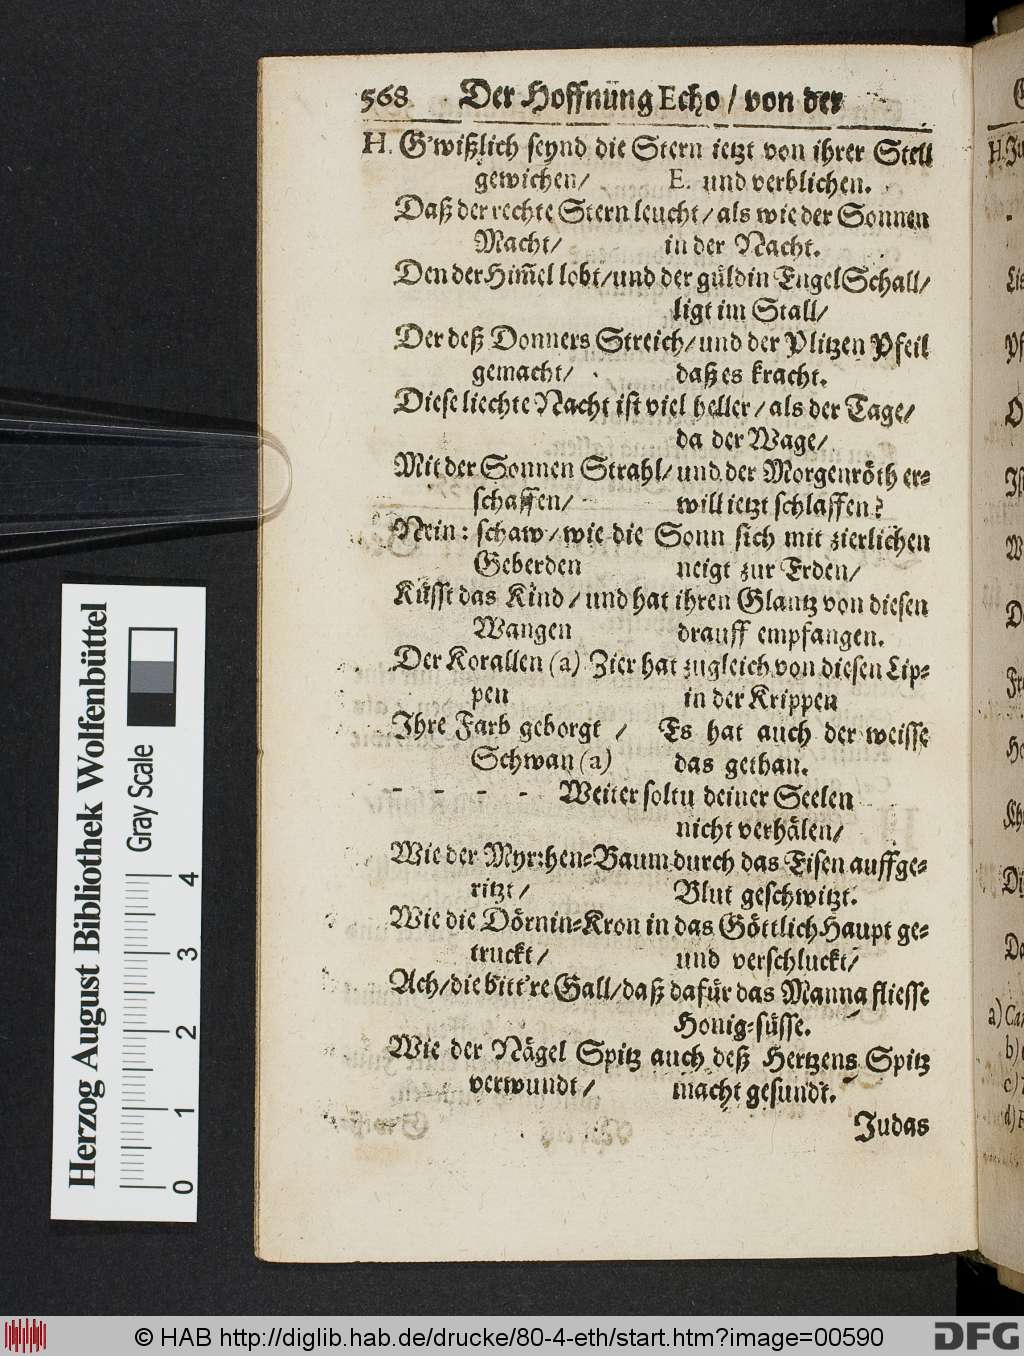 568 Der Hoffnung Echo / von der
H. G'wißlich seynd die Stern ietzt von ihrer Stell
gewichen / E. und verblichen.
Daß der rechte Stern leucht / als wie der Sonnen
Macht / in der Nacht.
Den der Him̃el lobt / und der güldin Engel Schall /
ligt im Stall /
Der deß Donners Streich / und der Plitzen Pfeil
gemacht / daß es kracht.
Diese liechte Nacht ist viel heller / als der Tage /
da der Wage /
Mit der Sonnen Strahl / und der Morgenröth er-
schaffen / will ietzt schlaffen?
Nein: schaw / wie die Sonn sich mit zierlichen
Geberden neigt zur Erden /
Küsst das Kind / und hat ihren Glantz von diesen
Wangen drauff empfangen.
Der Korallen (a) Zier hat zugleich von diesen Lip-
pen in der Krippen
Ihre Farb geborgt / Es hat auch der weisse
Schwan (a) das gethan.
- - - - Weiter soltu deiner Seelen
nicht verhälen /
Wie der Myrrhen-Baum durch das Eisen auffge-
ritzt / Blut geschwitzt.
Wie die Dörnin-Kron in das Göttlich Haupt ge-
truckt / und verschluckt /
Ach / die bitt're Gall / daß dafür das Manna fliesse
Honig-süsse.
Wie der Nägel Spitz auch deß Hertzens Spitz
verwundt / macht gesundt.
Judas
Herzog August Bibliothek Wolfenbüttel
Gray Scale
0 1 2 3 4
© HAB http://diglib.hab.de/drucke/80-4-eth/start.htm?image=00590
DFG